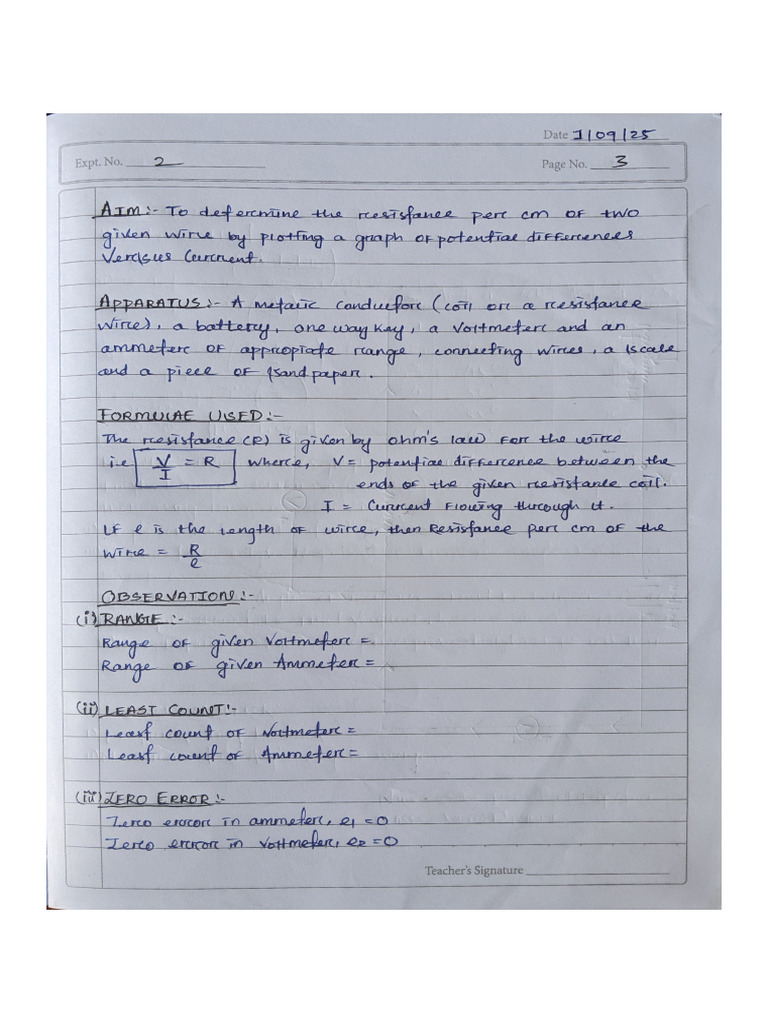 Date 1/09/25
Expt. No. 2
Page No. 3
AIM:- To determine the resistance per cm of two
given wire by plotting a graph of potential differences
Versus Current.
APPARATUS:- A metallic conductor (coil or a resistance
wire), a battery, one way key, a Voltmeter and an
ammeter of appropiate range, connecting wires, a scale
and a piece of sand paper.
FORMULAE USED:-
The resistance (R) is given by ohm's law for the wire
i.e V/I = R where, V = potential difference between the
ends of the given resistance coil.
I = Current flowing through it.
If l is the length of wire, then Resistance per cm of the
wire = R/l
OBSERVATION:-
(i) RANGE:-
Range of given Voltmeter =
Range of given Ammeter =
(ii) LEAST COUNT:-
Least count of Voltmeter =
Least count of Ammeter =
(iii) ZERO ERROR:-
Zero error in ammeter, e1 = 0
Zero error in Voltmeter, e2 = 0
Teacher's Signature